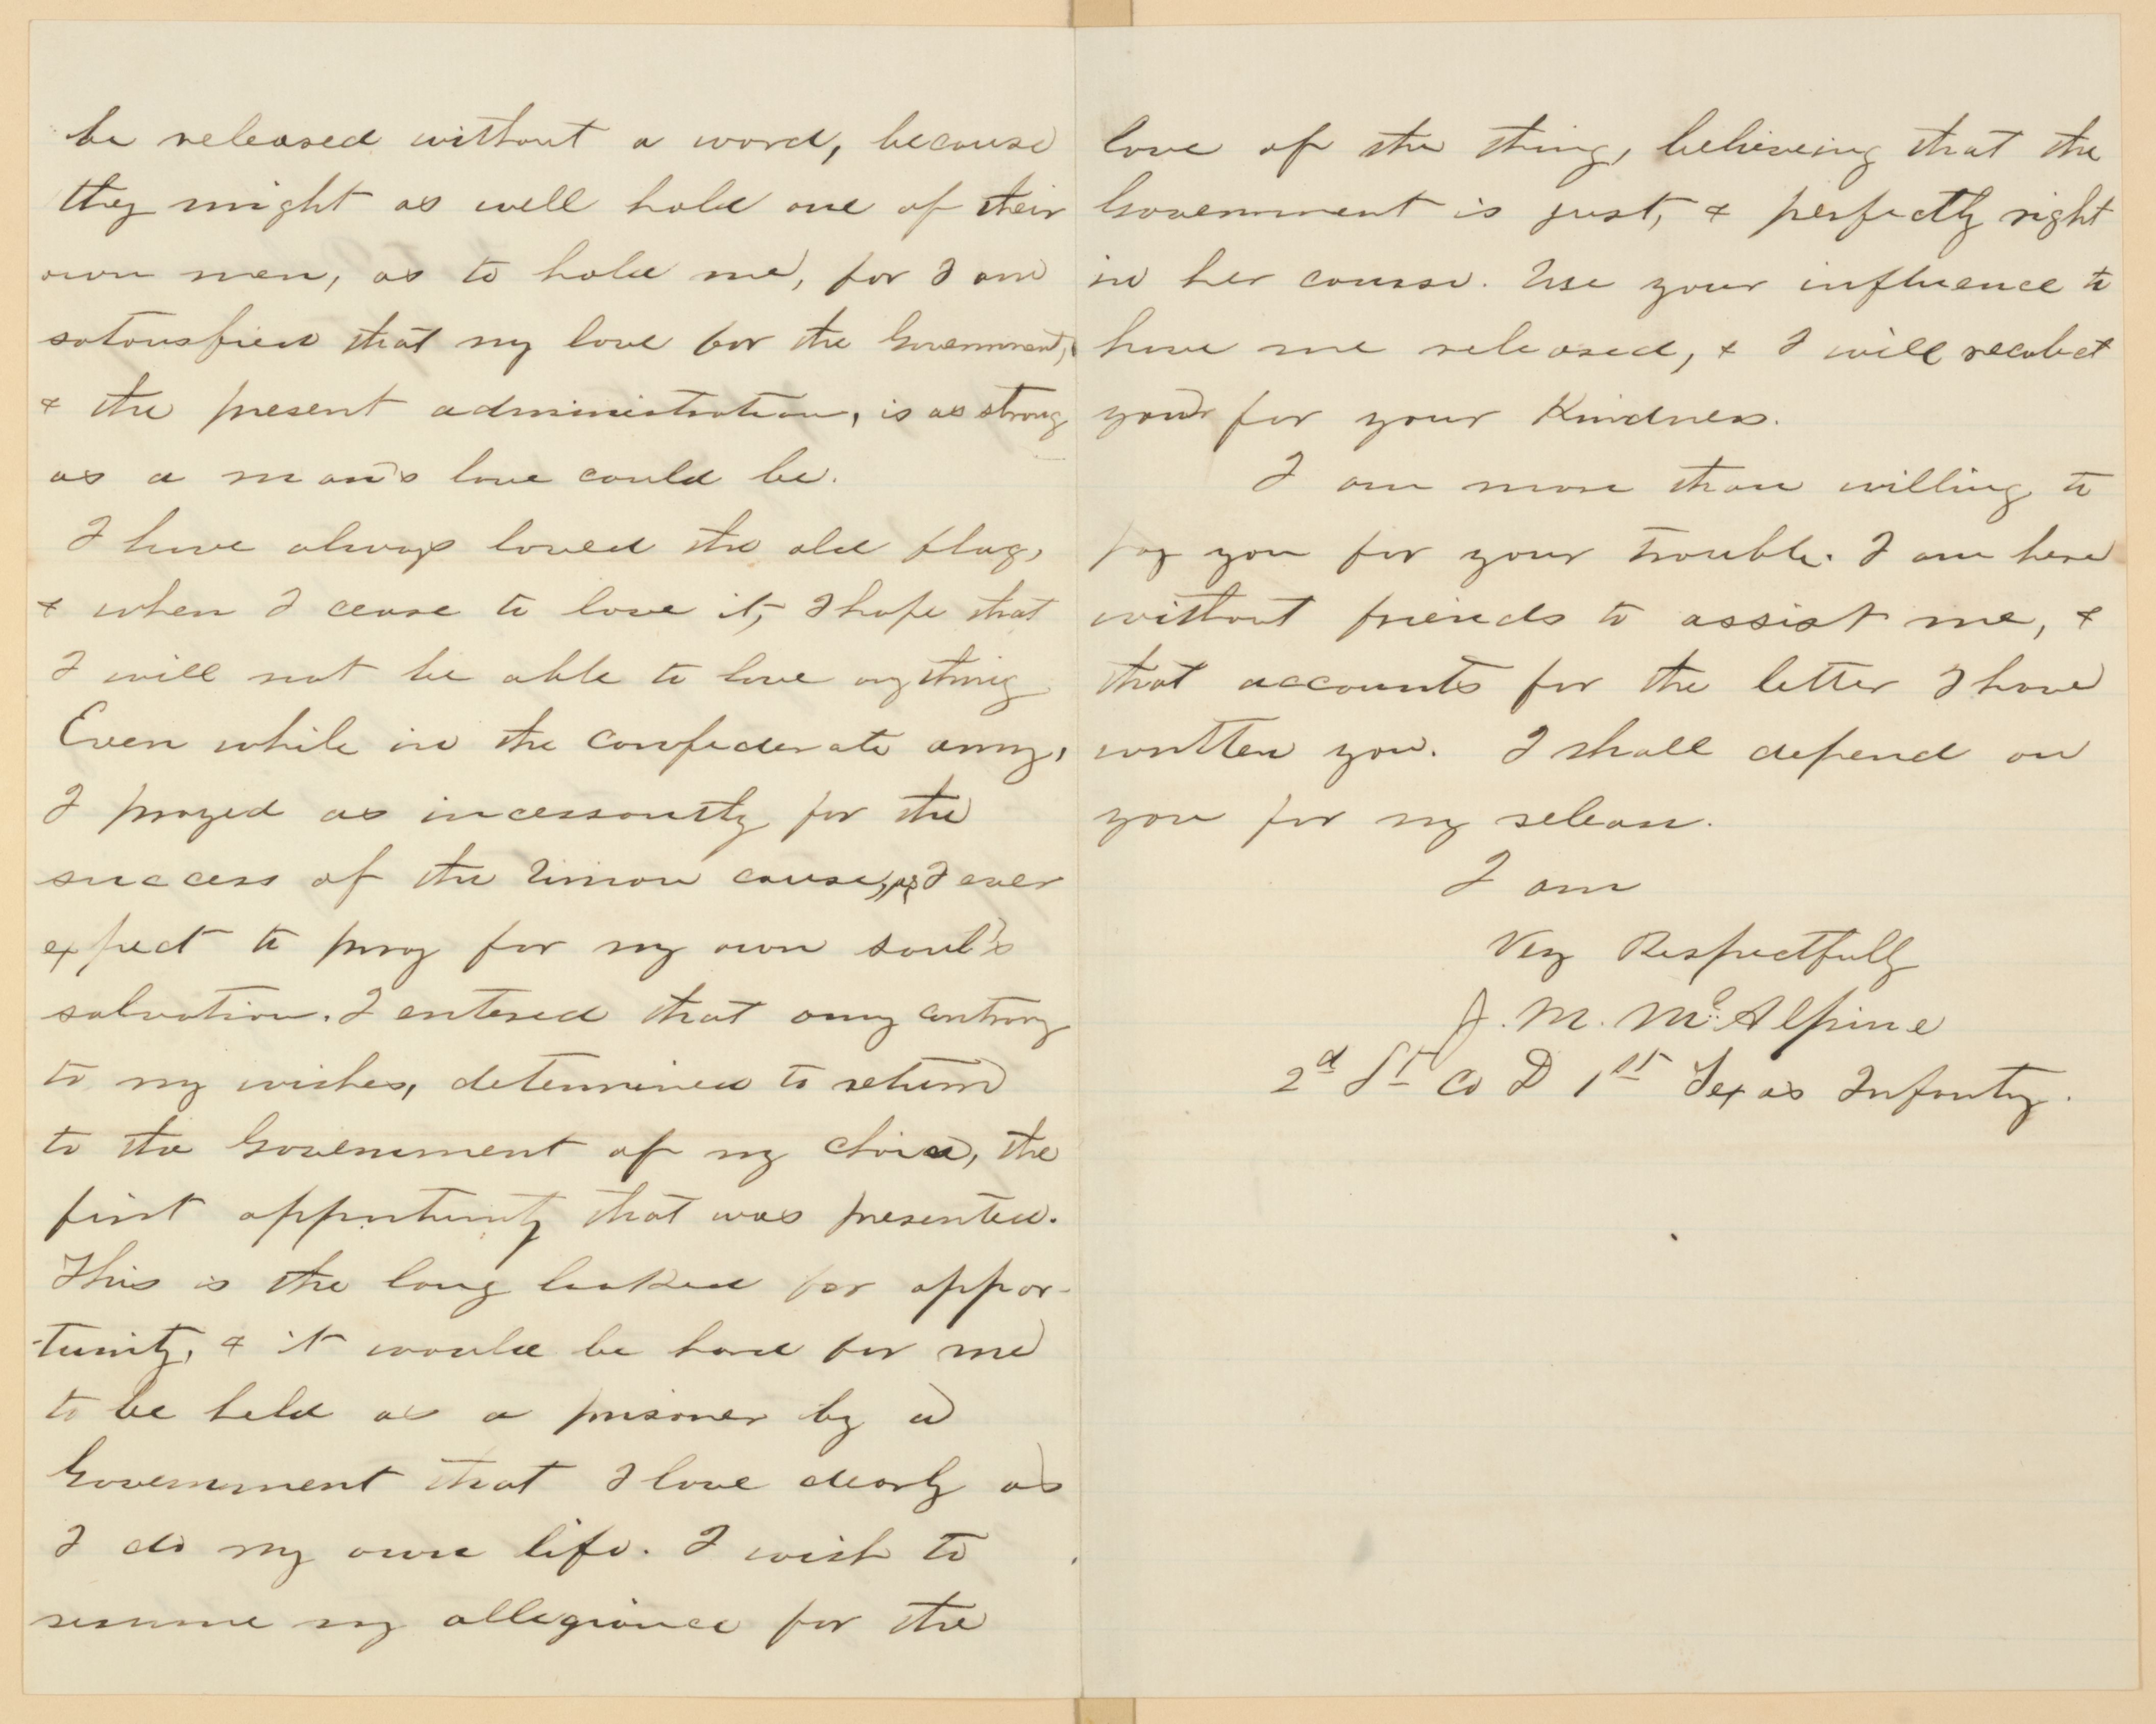 be released without a word, because
they might as well hold one of their
own men, as to hold me, for I am
satausfied that my love for the Government,
& the present administration, is as strong
as a man's love could be.
I have always loved the old flag,
& when I cease to love it, I hope that
I will not be able to love anything
Even while in the confederate army,
I prayed as incessantly for the
success of the Union cause, as I ever
expect to pray for my own soul's
salvation. I entered that army contrary
to my wishes, determined to return
to the Government of my choice, the
first opportunity that was presented.
This is the long looked for oppor-
-tunity, & it would be hard for me
to be held as a prisoner by a
Government that I love dearly as
I do my own life. I wish to
resume my allegiance for the
love of the thing, believing that the
Government is just, & perfectly right
in her course. Use your influence to
have me released, & I will recolect
you for your Kindness.
I am more than willing to
pay you for your trouble. I am here
without friends to assist me, &
that accounts for the letter I have
written you. I shall depend on
you for my release.
I am
Very Respectfully
J. M. McAlpine
2d Lt Co D 1st Texas Infantry.